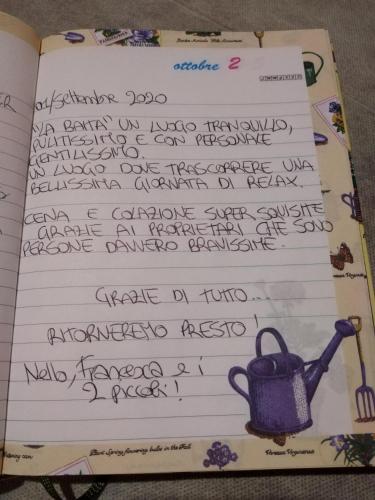 ottobre 2
01/settembre 2020
"LA BAITA" UN LUOGO TRANQUILLO,
PULITISSIMO E CON PERSONALE
GENTILISSIMO.
UN LUOGO DOVE TRASCORRERE UNA
BELLISSIMA GIORNATA DI RELAX.
CENA E COLAZIONE SUPER SQUISITE
GRAZIE AI PROPRIETARI CHE SONO
PERSONE DAVVERO BRAVISSIME.
GRAZIE DI TUTTO...
RITORNEREMO PRESTO!
Nello, Francesca e i
2 piccoli!
Plant Spring flowering bulbs in the Fall